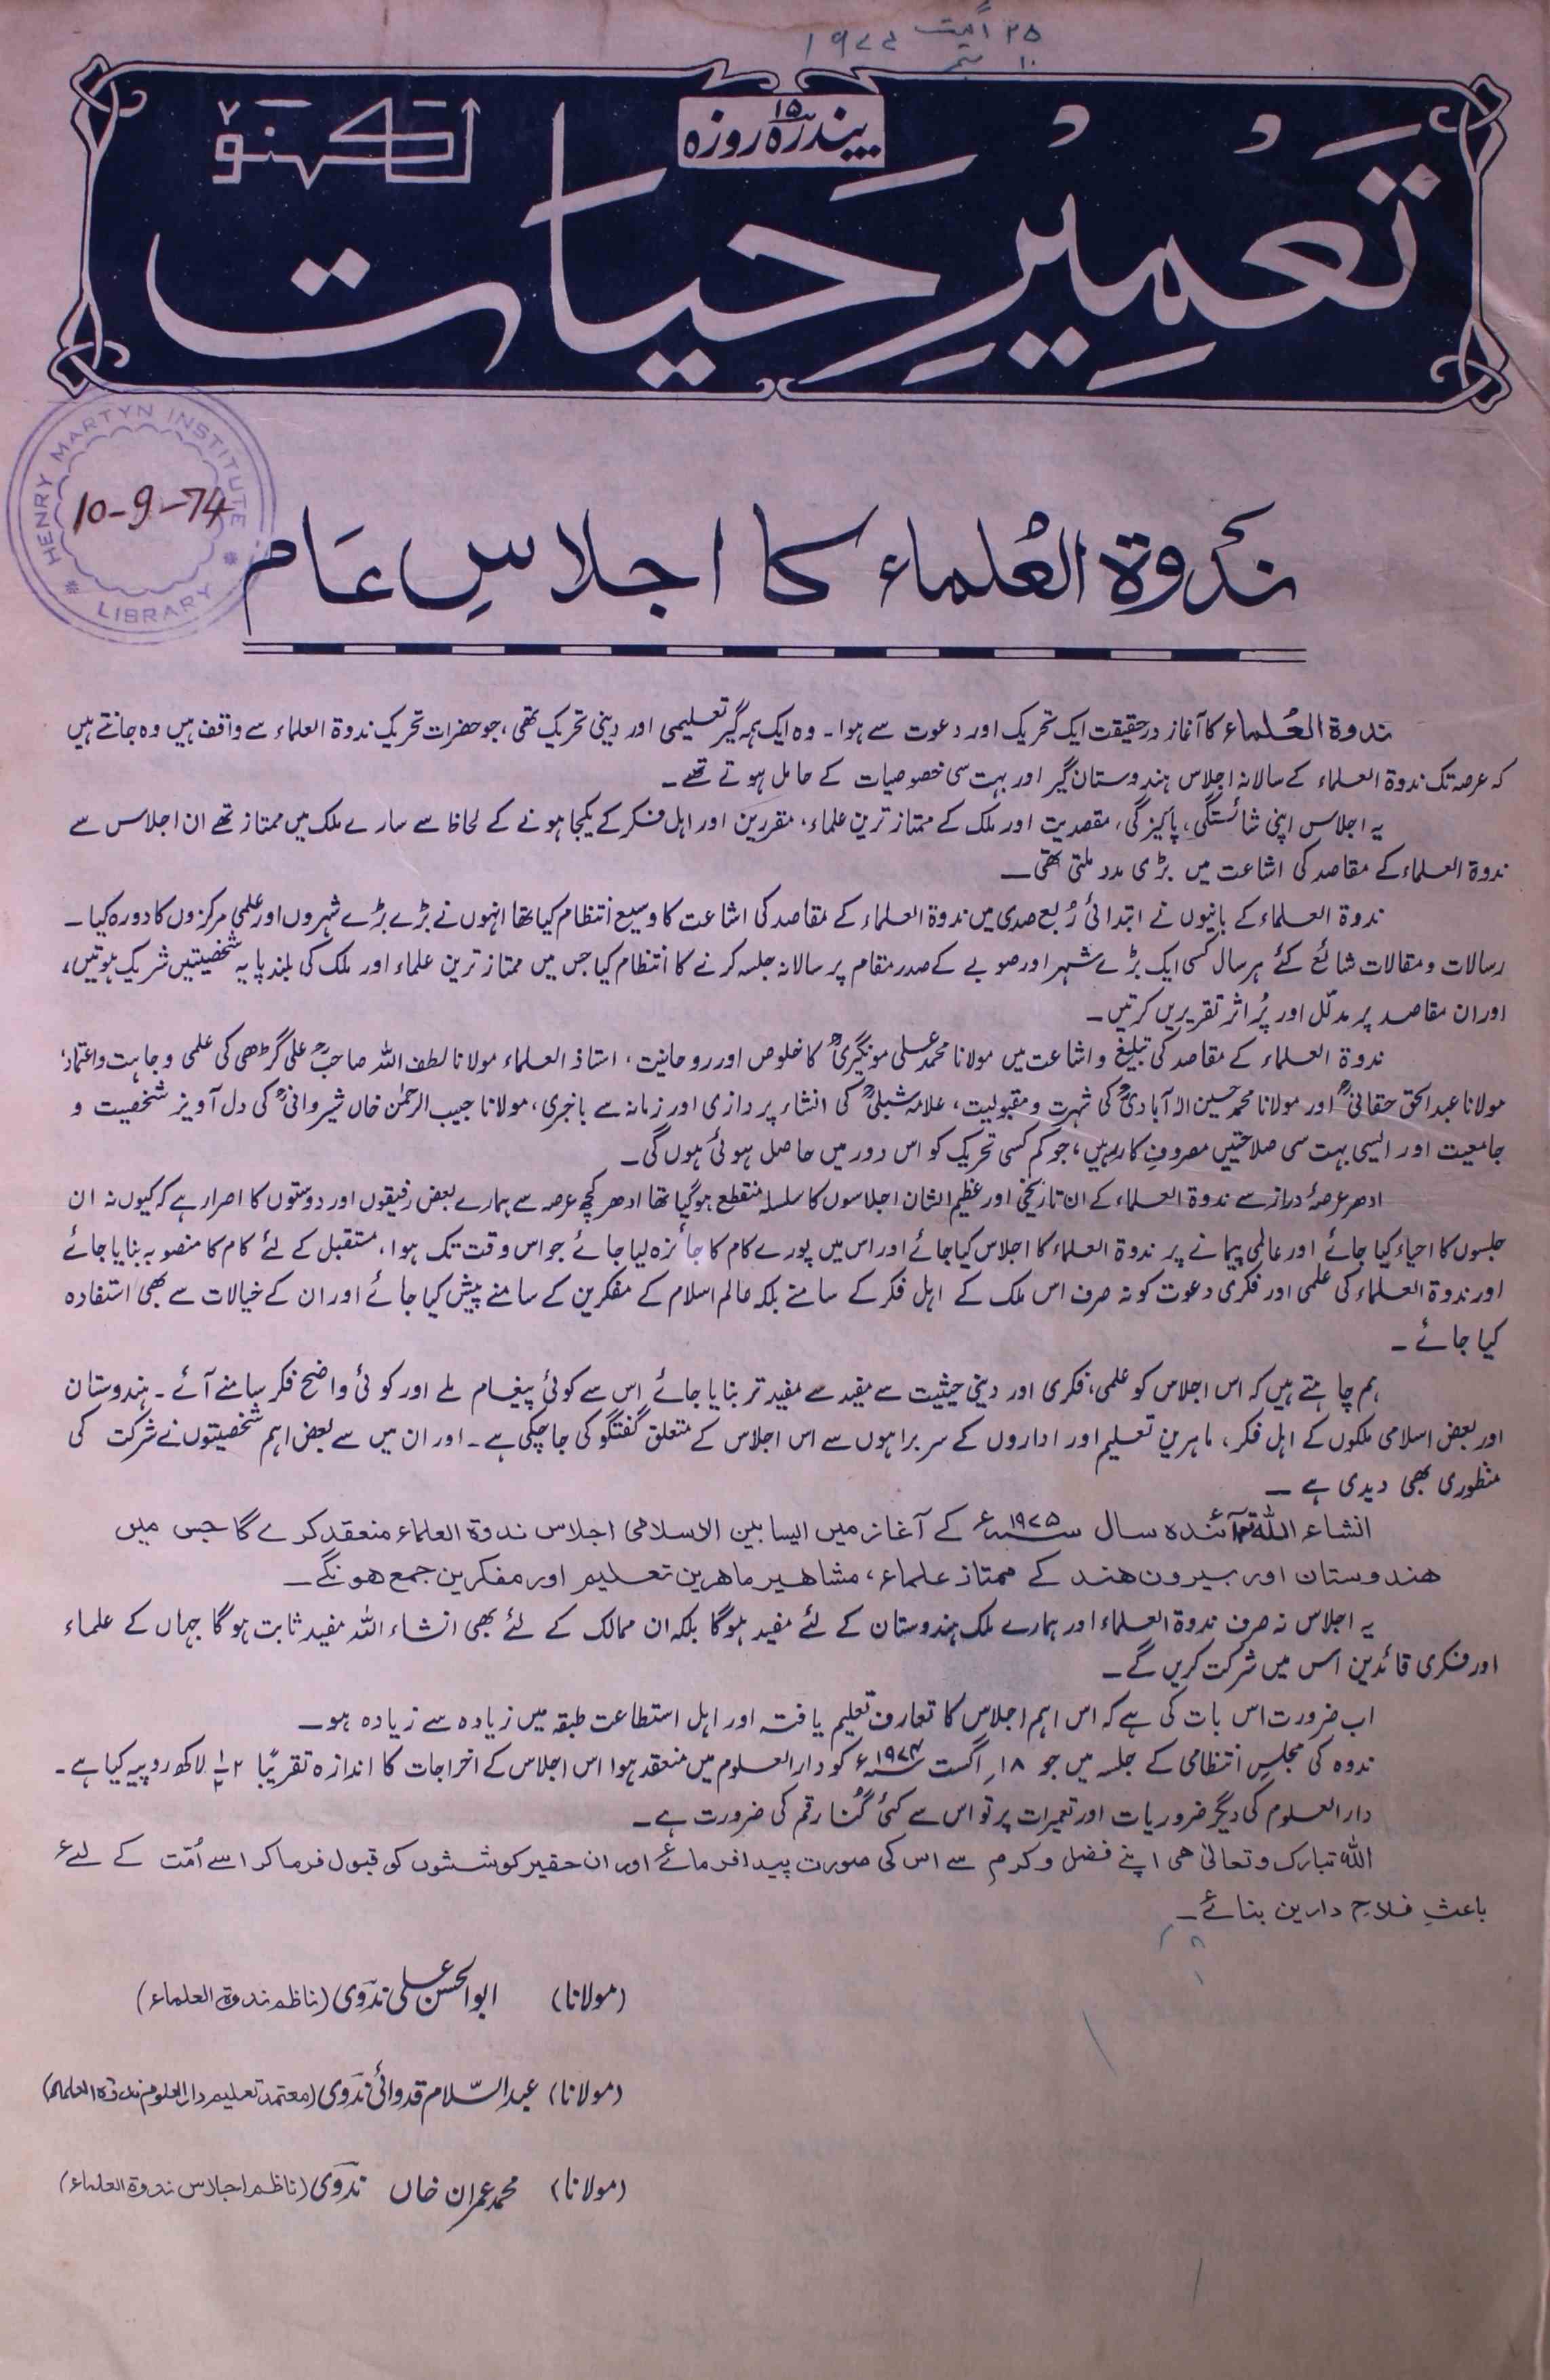 ۲۵ اگست ۱۹۷۴
۱۰ ستمبر
پندرہ ۱۵ روزہ
تَعمِیرِ حَیات
لکھنؤ
HENRY MARTYN INSTITUTE
LIBRARY
10-9-74
ندوۃ العُلماء کا اجلاسِ عَام
ندوۃ العُلماء کا آغاز درحقیقت ایک تحریک اور دعوت سے ہوا۔ وہ ایک ہمہ گیر تعلیمی اور دینی تحریک تھی، جو حضرات تحریک ندوۃ العلماء سے واقف ہیں وہ جانتے ہیں
کہ عرصہ تک ندوۃ العلماء کے سالانہ اجلاس ہندوستان گیر اور بہت سی خصوصیات کے حامل ہوتے تھے۔
یہ اجلاس اپنی شائستگی، پاکیزگی، مقصدیت اور ملک کے ممتاز ترین علماء، مقررین اور اہل فکر کے یکجا ہونے کے لحاظ سے سارے ملک میں ممتاز تھے ان اجلاس سے
ندوۃ العلماء کے مقاصد کی اشاعت میں بڑی مدد ملتی تھی۔
ندوۃ العلماء کے بانیوں نے ابتدائی رُبع صدی میں ندوۃ العلماء کے مقاصد کی اشاعت کا وسیع انتظام کیا تھا انہوں نے بڑے بڑے شہروں اور علمی مرکزوں کا دورہ کیا۔
رسالات و مقالات شائع کئے ہر سال کسی ایک بڑے شہر اور صوبے کے صدر مقام پر سالانہ جلسہ کرنے کا انتظام کیا جس میں ممتاز ترین علماء اور ملک کی بلند پایہ شخصیتیں شریک ہوتیں،
اور ان مقاصد پر مدلّل اور پُر اثر تقریریں کرتیں۔
ندوۃ العلماء کے مقاصد کی تبلیغ و اشاعت میں مولانا محمد علی مونگیریؒ کا خلوص اور روحانیت، استاذ العلماء مولانا لطف اللہ صاحبؒ علی گڑھی کی علمی وجاہت و اعتماد،
مولانا عبدالحق حقانیؒ اور مولانا محمد حسین الہ آبادیؒ کی شہرت و مقبولیت، علامہ شبلیؒ کی انشاء پردازی اور زمانہ سے باخبری، مولانا حبیب الرحمٰن خاں شیروانیؒ کی دل آویز شخصیت و
جامعیت اور ایسی بہت سی صلاحتیں مصروفِ کار رہیں، جو کم کسی تحریک کو اس دور میں حاصل ہوئی ہوں گی۔
ادھر عرصۂ دراز سے ندوۃ العلماء کے ان تاریخی اور عظیم الشان اجلاسوں کا سلسلہ منقطع ہوگیا تھا ادھر کچھ عرصہ سے ہمارے بعض رفیقوں اور دوستوں کا اصرار ہے کہ کیوں نہ ان
جلسوں کا احیاء کیا جائے اور عالمی پیمانے پر ندوۃ العلماء کا اجلاس کیا جائے اور اس میں پورے کام کا جائزہ لیا جائے جو اس وقت تک ہوا، مستقبل کے لئے کام کا منصوبہ بنایا جائے
اور ندوۃ العلماء کی علمی اور فکری دعوت کو نہ صرف اس ملک کے اہل فکر کے سامنے بلکہ عالم اسلام کے مفکرین کے سامنے پیش کیا جائے اور ان کے خیالات سے بھی استفادہ
کیا جائے۔
ہم چاہتے ہیں کہ اس اجلاس کو علمی، فکری اور دینی حیثیت سے مفید سے مفید تر بنایا جائے اس سے کوئی پیغام ملے اور کوئی واضح فکر سامنے آئے۔ ہندوستان
اور بعض اسلامی ملکوں کے اہل فکر، ماہرین تعلیم اور اداروں کے سربراہوں سے اس اجلاس کے متعلق گفتگو کی جاچکی ہے۔ اور ان میں سے بعض اہم شخصیتوں نے شرکت کی
منظوری بھی دیدی ہے۔
انشاء اللہ تعالیٰ آئندہ سال ۱۹۷۵ء کے آغاز میں ایسا بین الاسلامی اجلاس ندوۃ العلماء منعقد کرے گا جس میں
ہندوستان اور بیرون ہند کے ممتاز علماء، مشاہیر ماہرین تعلیم اور مفکرین جمع ہونگے۔
یہ اجلاس نہ صرف ندوۃ العلماء اور ہمارے ملک ہندوستان کے لئے مفید ہوگا بلکہ ان ممالک کے لئے بھی انشاء اللہ مفید ثابت ہوگا جہاں کے علماء
اور فکری قائدین اس میں شرکت کریں گے۔
اب ضرورت اس بات کی ہے کہ اس اہم اجلاس کا تعارف تعلیم یافتہ اور اہل استطاعت طبقہ میں زیادہ سے زیادہ ہو۔
ندوہ کی مجلسِ انتظامی کے جلسہ میں جو ۱۸؍ اگست ۱۹۷۴ء کو دارالعلوم میں منعقد ہوا اس اجلاس کے اخراجات کا اندازہ تقریبًا ۲½ لاکھ روپیہ کیا ہے۔
دارالعلوم کی دیگر ضروریات اور تعمیرات پر تو اس سے کئی گُنا رقم کی ضرورت ہے۔
اللہ تبارک و تعالیٰ ہی اپنے فضل و کرم سے اس کی صورت پیدا فرمائے اور ان حقیر کوششوں کو قبول فرما کر اسے اُمّت کے لئے
باعثِ فلاحِ دارین بنائے۔
(مولانا) ابوالحسن علی ندوی (ناظم ندوۃ العلماء)
(مولانا) عبدالسّلام قدوائی ندوی (معتمد تعلیم دارالعلوم ندوۃ العلماء)
(مولانا) محمد عمران خاں ندوی (ناظم اجلاس ندوۃ العلماء)